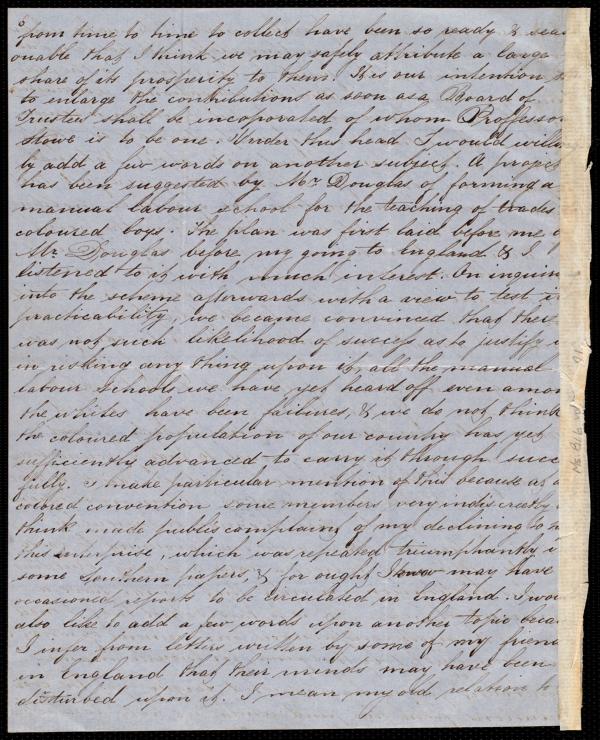 from time to time to collect have been so ready & seas
onable that I think we may safely attribute a large
share of its prosperity to them. It is our intention
to enlarge the contributions as soon as a Board of
Trustees shall be incoporated of whom Proffessor
Stowe is to be one. Under this head I would willing
ly add a few words on another subject. A propos
has been suggested by Mr. Douglas of forming a
manual labour school for the teaching of trades
coloured boys. The plan was first laid before me
Mr. Douglas before my going to England & I
listened to it with much interest. On inquir
into the scheme afterwards with a view to test i
practicability, we became convinced that ther
was not such likelihood of success as to justify
in risking any thing upon it, all the manual
labour schools we have yet heard off even amon
the whites have been failures, & we do not think
the coloured population of our country has yet
sufficiently advanced to carry it through succ
fully. I make particular mention of this because at a
colored convention some members very indiscreetly
think made public complaint of my declining to
this enterprise, which was repeated triumphantly i
some Southern papers, & for ought I know may have
occasioned reports to be circulated in England. I wou
also like to add a few words upon another topic beca
I infer from letters written by some of my friend
in England that their minds may have been
disturbed upon it. I mean my old relation to